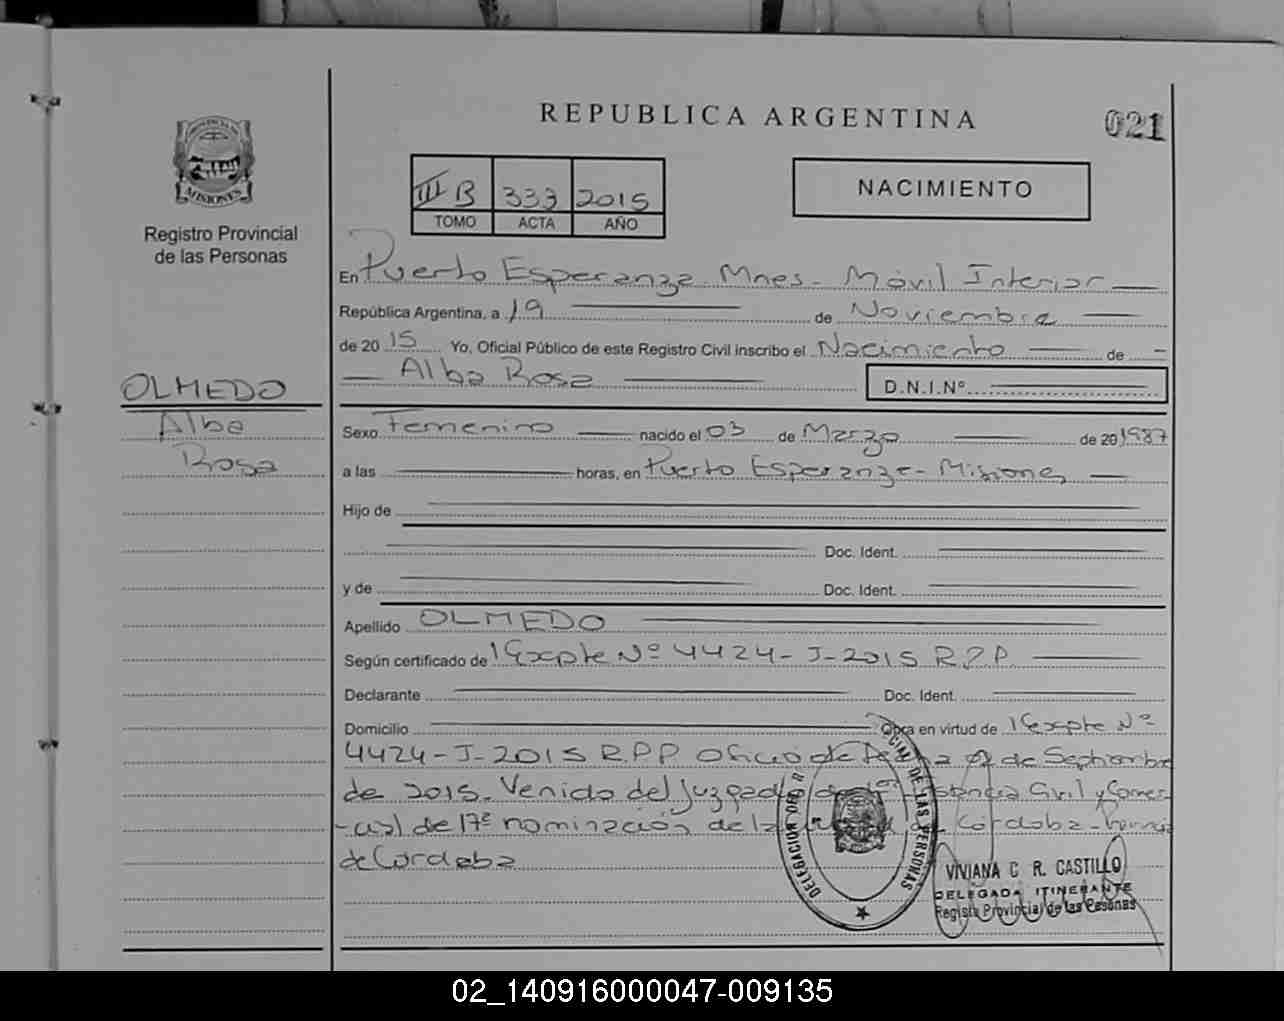 REPUBLICA ARGENTINA
021
PROVINCIA DE
MISIONES
Registro Provincial
de las Personas
III B 333 2015
TOMO ACTA AÑO
NACIMIENTO
En Puerto Esperanza - Mnes - Móvil Interior
República Argentina, a 19 de Noviembre
de 2015 Yo, Oficial Público de este Registro Civil inscribo el Nacimiento de
Alba Rosa D.N.I.Nº
OLMEDO
Alba
Rosa
Sexo Femenino nacido el 03 de Marzo de 20 1987
a las horas, en Puerto Esperanza - Misiones
Hijo de
Doc. Ident.
y de Doc. Ident.
Apellido OLMEDO
Según certificado de Expte Nº 4424-J-2015 R.P.P
Declarante Doc. Ident.
Domicilio Obra en virtud de Expte Nº
4424-J-2015 R.P.P Oficio de de Septiembre
de 2015. Venido del Juzgado de 1º Civil y Comer
-cial de 17º nominación de la de Córdoba -
de Córdoba
DELEGACION DEL DE LAS PERSONAS
VIVIANA C R. CASTILLO
DELEGADA ITINERANTE
Registro Provincial de las Pesonas
02_140916000047-009135